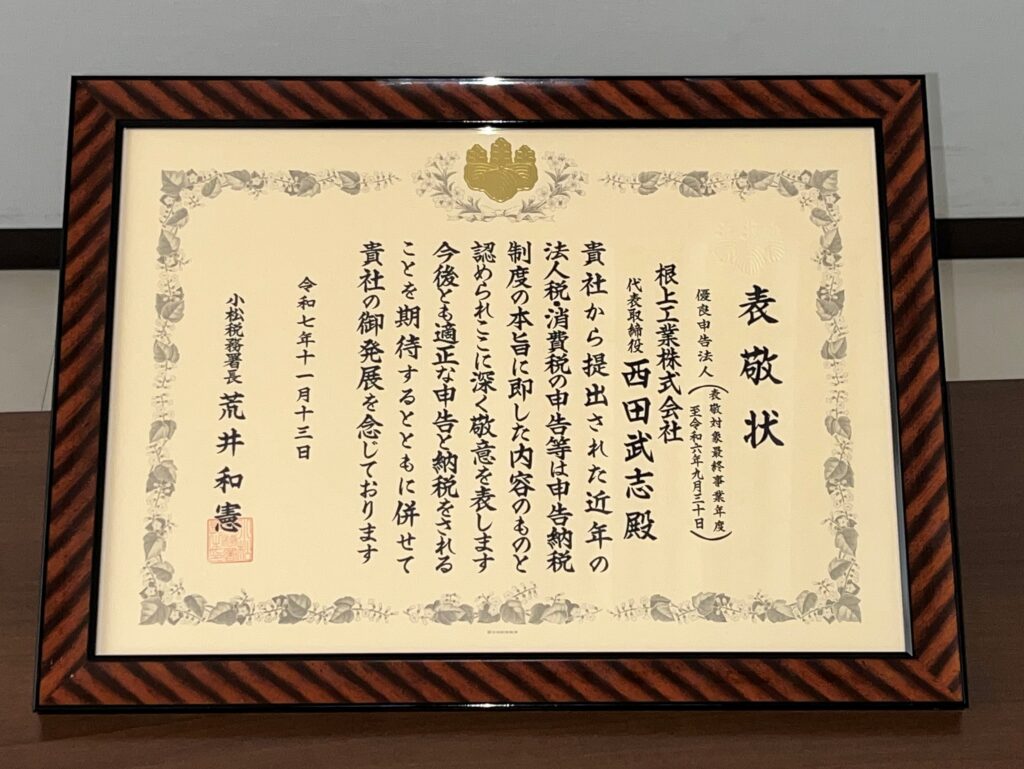 表敬状
優良申告法人
(表敬対象最終事業年度
至令和六年九月三十日)
根上工業株式会社
代表取締役 西田武志殿
貴社から提出された近年の
法人税・消費税の申告等は申告納税
制度の本旨に即した内容のものと
認められここに深く敬意を表します
今後とも適正な申告と納税をされる
ことを期待するとともに併せて
貴社の御発展を念じております
令和七年十一月十三日
小松税務署長 荒井和憲